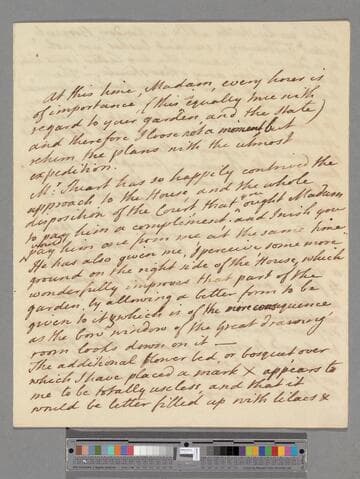 At this time, Madam, every hour is
of importance, (this equally true with
regard to your garden, and the state)
and therefore I loose not a moment, but
return the plans with the utmost
expedition.
Mr: Stuart has so happily contrived the
approach to the House and the whole
disposition of the Court, that you ought Madam
to pay him a compliment, and I wish you
would pay him one from me at the same time.
He has also given me, I perceive some more
ground on the right side of the House, which
wonderfully improves that part of the
garden, by allowing a better form to be
given to it, which is of the more consequence
as the bow window of the Great drawing
room looks down on it —
The additional flower bed, or bosquet over
which I have placed a mark X appears to
me to be totally useless, and that it
would be better filled up with lilacs &